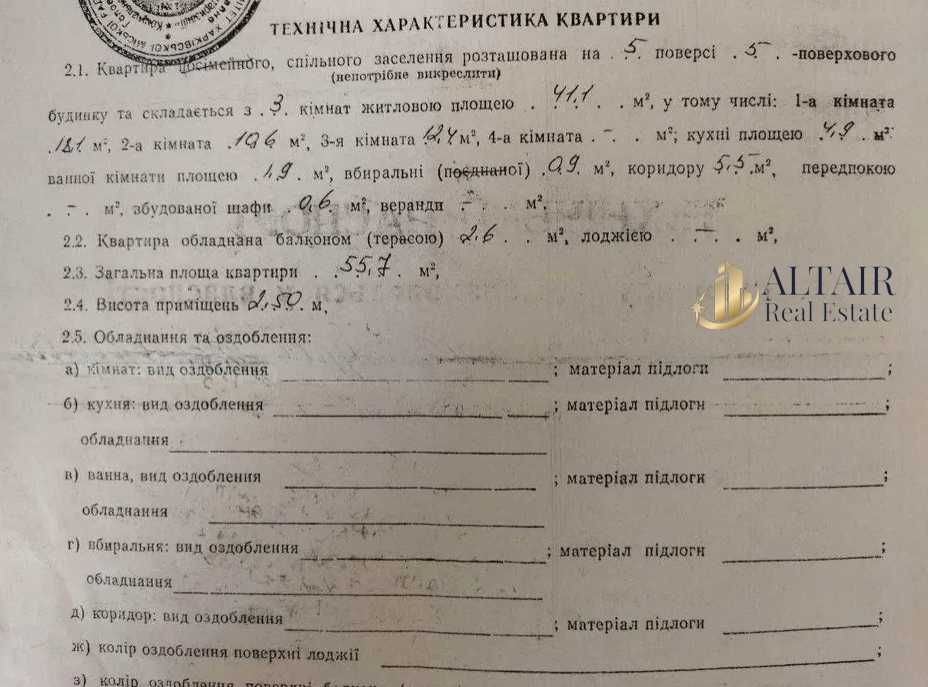 ТЕХНІЧНА ХАРАКТЕРИСТИКА КВАРТИРИ
2.1. Квартира посімейного, спільного заселення розташована на 5 поверсі 5 -поверхового
(непотрібне викреслити)
будинку та складається з 3 кімнат житловою площею 41.1 м², у тому числі: 1-а кімната
18.1 м², 2-а кімната 10.6 м², 3-я кімната 12.4 м², 4-а кімната - м²; кухні площею 4.9 м²
ванної кімнати площею 1.9 м², вбиральні (поєднаної) 0.9 м², коридору 5.5 м², передпокою
- м², збудованої шафи 0.6 м², веранди - м².
2.2. Квартира обладнана балконом (терасою) 2.6 м², лоджією - м²,
2.3. Загальна площа квартири 55.7 м²,
2.4. Висота приміщень 2.50 м,
ALTAIR
Real Estate
2.5. Обладнання та оздоблення:
а) кімнат: вид оздоблення ; матеріал підлоги ;
б) кухня: вид оздоблення ; матеріал підлоги ;
обладнання
в) ванна, вид оздоблення ; матеріал підлоги ;
обладнання
г) вбиральня: вид оздоблення ; матеріал підлоги ;
обладнання
д) коридор: вид оздоблення ; матеріал підлоги ;
ж) колір оздоблення поверхні лоджії ;
з) колір оздоблення поверхні